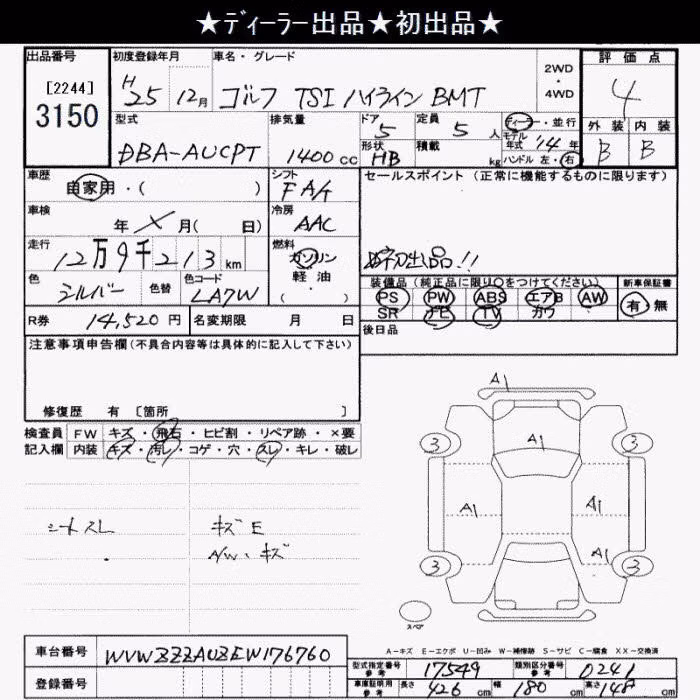 ★ディーラー出品★初出品★
出品番号
[2244]
3150
初度登録年月
H25 12月
車名・グレード
ゴルフ TSI ハイライン BMT
2WD
・
4WD
評価点
4
外装 内装
B B
型式
DBA-AUCPT
排気量
1400cc
ドア
5
形状
HB
定員
5人
積載
kg
ディーラー・並行
モデル年式 '14年
ハンドル 左・右
車歴
自家用・( )
シフト
FA/T
車検
年 X 月( 日)
冷房
AAC
走行
12万9千213km
燃料
ガソリン
・
軽油
( )
色
シルバー
色替
色コード
LA7W
セールスポイント (正常に機能するものに限ります)
初出品!!
装備品(純正品に限り○をつけてください)
PS PW ABS エアB AW
SR ナビ TV カワ
新車保証書
有・無
R券 14,520円
名変期限 月 日
後日品
注意事項申告欄(不具合内容等は具体的に記入して下さい)
修復歴 有 〔箇所 〕
検査員 FW キズ・飛石・ヒビ割・リペア跡・×要
記入欄 内装 キズ・汚レ・コゲ・穴・スレ・キレ・破レ
シートスレ キズE
A/W・キズ
A1
3 3
A1
A1 A1
A1
3 3
スペア
A-キズ E-エクボ U-凹み W-補修跡 S-サビ C-腐食 XX-交換済
車台番号 WVWZZZAUZEW176760
登録番号
型式指定番号 参考 17549
類別区分番号 参考 0241
車庫証明用 参考 長さ 426cm 幅 180cm 高さ 148cm